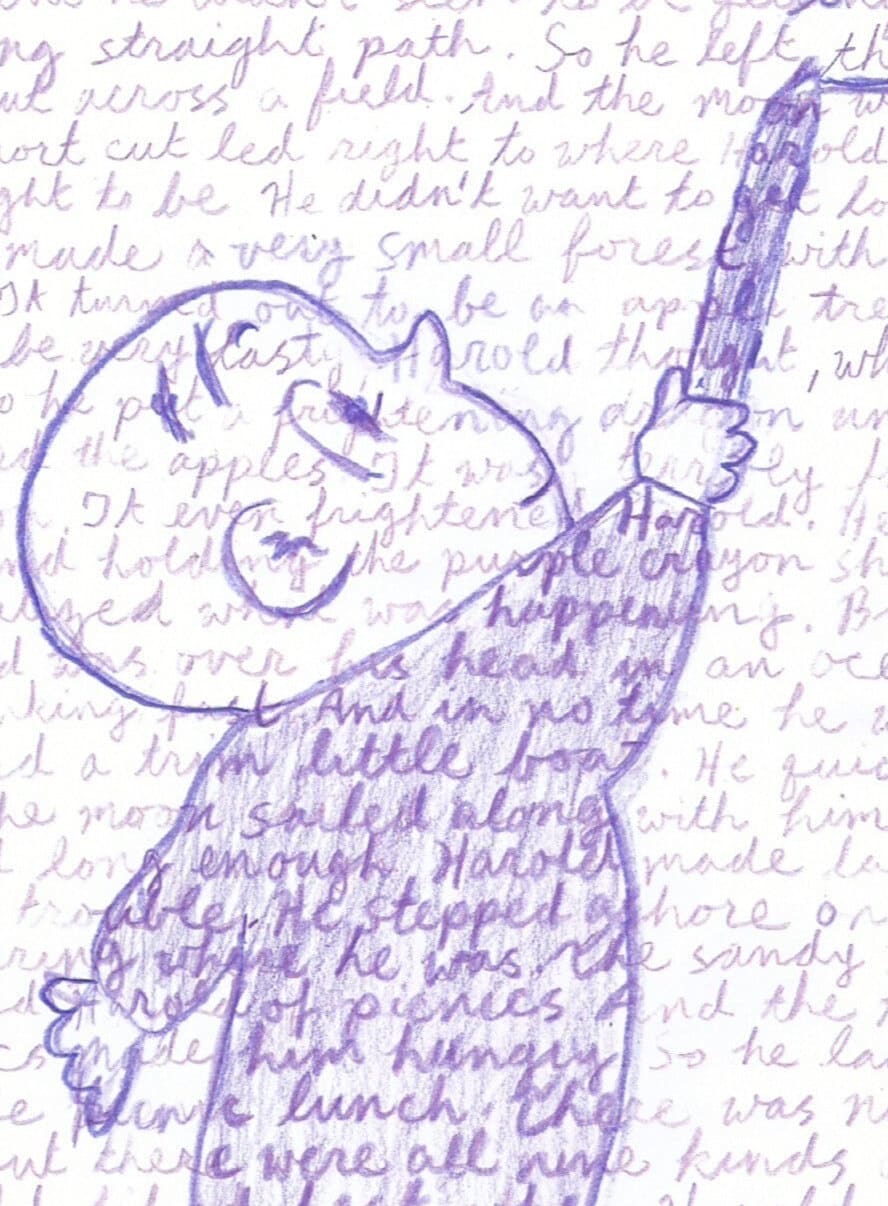 ng straight path. So he left th
ut across a field. And the moon w
ort cut led right to where Harold
ght to be He didn't want to get lo
made a very small forest with
It turned out to be an apple tre
be very tasty Harold thought, wh
o he put a frightening dragon un
ed the apples. It was terribly f
It even frightened Harold. He
nd holding the purple crayon sh
alized what was happening. B
d was over his head in an oce
nking fast. And in no time he w
d a trim little boat. He quic
he moon sailed along with him
d long enough Harold made la
trouble. He stepped ashore on
ring where he was. The sandy
d Harold of picnics And the
cs made him hungry So he la
e picnic lunch. There was n
ut there were all nine kinds